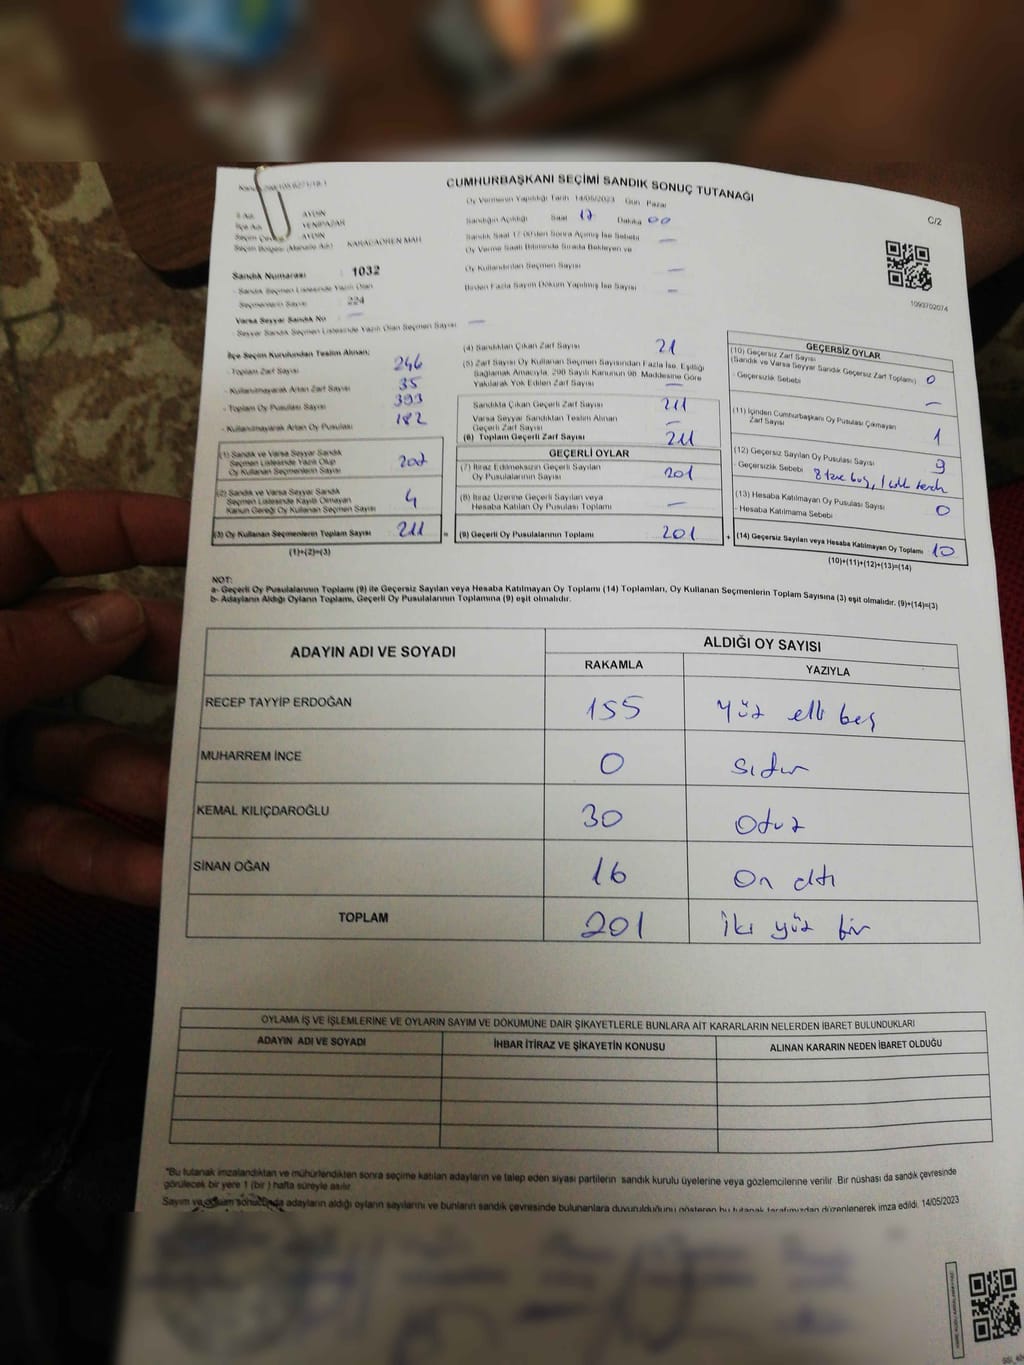 CUMHURBAŞKANI SEÇİMİ SANDIK SONUÇ TUTANAĞI
C/2
Oy Vermenin Yapıldığı Tarih 14/05/2023 Gün Pazar
İl Adı : AYDIN
İlçe Adı : YENİPAZAR
Seçim Çevresi : AYDIN
Seçim Bölgesi (Mahalle Adı) KARACAÖREN MAH
Sandığın Açıldığı Saat 17 Dakika 00
Sandık Saat 17:00'den Sonra Açılmış İse Sebebi —
Oy Verme Saati Bitiminde Sırada Bekleyen ve
Oy Kullandırılan Seçmen Sayısı —
Birden Fazla Sayım Döküm Yapılmış İse Sayısı —
1093702074
Sandık Numarası : 1032
- Sandık Seçmen Listesinde Yazılı Olan
Seçmenlerin Sayısı : 224
Varsa Seyyar Sandık No : —
- Seyyar Sandık Seçmen Listesinde Yazılı Olan Seçmen Sayısı : —
İlçe Seçim Kurulundan Teslim Alınan;
- Toplam Zarf Sayısı : 246
- Kullanılmayarak Artan Zarf Sayısı : 35
- Toplam Oy Pusulası Sayısı : 393
- Kullanılmayarak Artan Oy Pusulası : 182
(1) Sandık ve Varsa Seyyar Sandık
Seçmen Listesinde Yazılı Olup
Oy Kullanan Seçmenlerin Sayısı 207
(2) Sandık ve Varsa Seyyar Sandık
Seçmen Listesinde Kayıtlı Olmayan
Kanun Gereği Oy Kullanan Seçmen Sayısı 4
(3) Oy Kullanan Seçmenlerin Toplam Sayısı 211
(1)+(2)=(3)
(4) Sandıktan Çıkan Zarf Sayısı 21
(5) Zarf Sayısı Oy Kullanan Seçmen Sayısından Fazla İse, Eşitliği
Sağlamak Amacıyla, 298 Sayılı Kanunun 98. Maddesine Göre
Yakılarak Yok Edilen Zarf Sayısı —
Sandıkta Çıkan Geçerli Zarf Sayısı 211
Varsa Seyyar Sandıktan Teslim Alınan
Geçerli Zarf Sayısı —
(6) Toplam Geçerli Zarf Sayısı 211
GEÇERLİ OYLAR
(7) İtiraz Edilmeksizin Geçerli Sayılan
Oy Pusulalarının Sayısı 201
(8) İtiraz Üzerine Geçerli Sayılan veya
Hesaba Katılan Oy Pusulası Toplamı —
= (9) Geçerli Oy Pusulalarının Toplamı 201 +
GEÇERSİZ OYLAR
(10) Geçersiz Zarf Sayısı
(Sandık ve Varsa Seyyar Sandık Geçersiz Zarf Toplamı) 0
- Geçersizlik Sebebi —
(11) İçinden Cumhurbaşkanı Oy Pusulası Çıkmayan
Zarf Sayısı 1
(12) Geçersiz Sayılan Oy Pusulası Sayısı 9
- Geçersizlik Sebebi 8 tane boş, 1
(13) Hesaba Katılmayan Oy Pusulası Sayısı 0
- Hesaba Katılmama Sebebi
(14) Geçersiz Sayılan veya Hesaba Katılmayan Oy Toplamı 10
(10)+(11)+(12)+(13)=(14)
NOT:
a- Geçerli Oy Pusulalarının Toplamı (9) ile Geçersiz Sayılan veya Hesaba Katılmayan Oy Toplamı (14) Toplamları, Oy Kullanan Seçmenlerin Toplam Sayısına (3) eşit olmalıdır. (9)+(14)=(3)
b- Adayların Aldığı Oyların Toplamı, Geçerli Oy Pusulalarının Toplamına (9) eşit olmalıdır.
ADAYIN ADI VE SOYADI ALDIĞI OY SAYISI
RAKAMLA YAZIYLA
RECEP TAYYİP ERDOĞAN 155 Yüz elli beş
MUHARREM İNCE 0 Sıfır
KEMAL KILIÇDAROĞLU 30 Otuz
SİNAN OĞAN 16 On altı
TOPLAM 201 İki yüz bir
OYLAMA İŞ VE İŞLEMLERİNE VE OYLARIN SAYIM VE DÖKÜMÜNE DAİR ŞİKAYETLERLE BUNLARA AİT KARARLARIN NELERDEN İBARET BULUNDUKLARI
ADAYIN ADI VE SOYADI İHBAR İTİRAZ VE ŞİKAYETİN KONUSU ALINAN KARARIN NEDEN İBARET OLDUĞU
"Bu tutanak imzalandıktan ve mühürlendikten sonra seçime katılan adayların ve talep eden siyasi partilerin sandık kurulu üyelerine veya gözlemcilerine verilir. Bir nüshası da sandık çevresinde
görülecek bir yere 1 (bir ) hafta süreyle asılır.
Sayım ve döküm sonucunda adayların aldığı oyların sayılarını ve bunların sandık çevresinde bulunanlara duyurulduğunu gösteren bu tutanak tarafımızdan düzenlenerek imza edildi. 14/05/2023